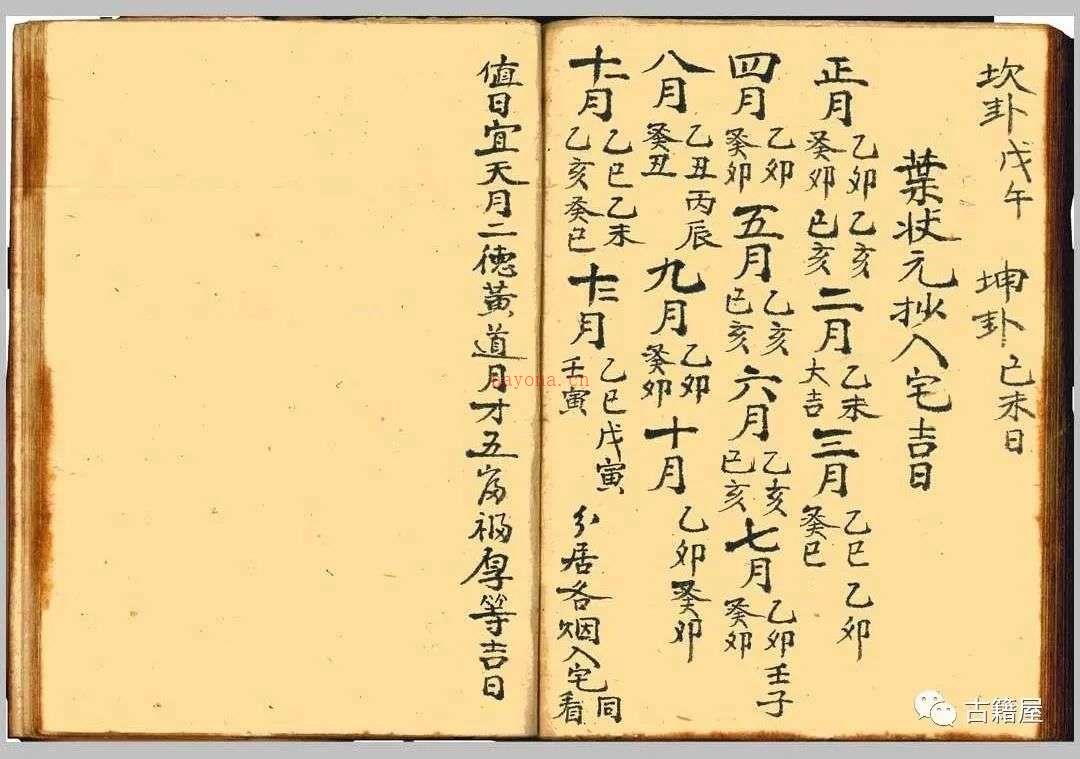 坎卦戊午 坤卦己未日
葉状元抄入宅吉日
正月 乙卯乙亥 癸卯己亥 二月 乙未 大吉 三月 乙巳乙卯 癸巳
四月 乙卯 癸卯 五月 乙亥 己亥 六月 乙亥 己亥 七月 乙卯壬子 癸卯
八月 乙丑丙辰 癸丑 九月 乙卯 癸卯 十月 乙卯癸卯
十一月 乙巳乙未 乙亥癸巳 十二月 乙巳戊寅 壬寅 分居各烟入宅同看
值日宜天月二徳黃道月才五富福厚等吉日
bayona.cn
古籍屋